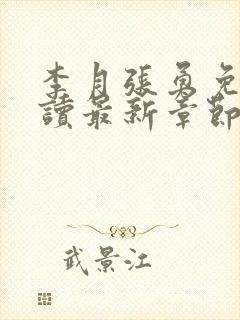 李月張勇免
讀最新章節
武景江